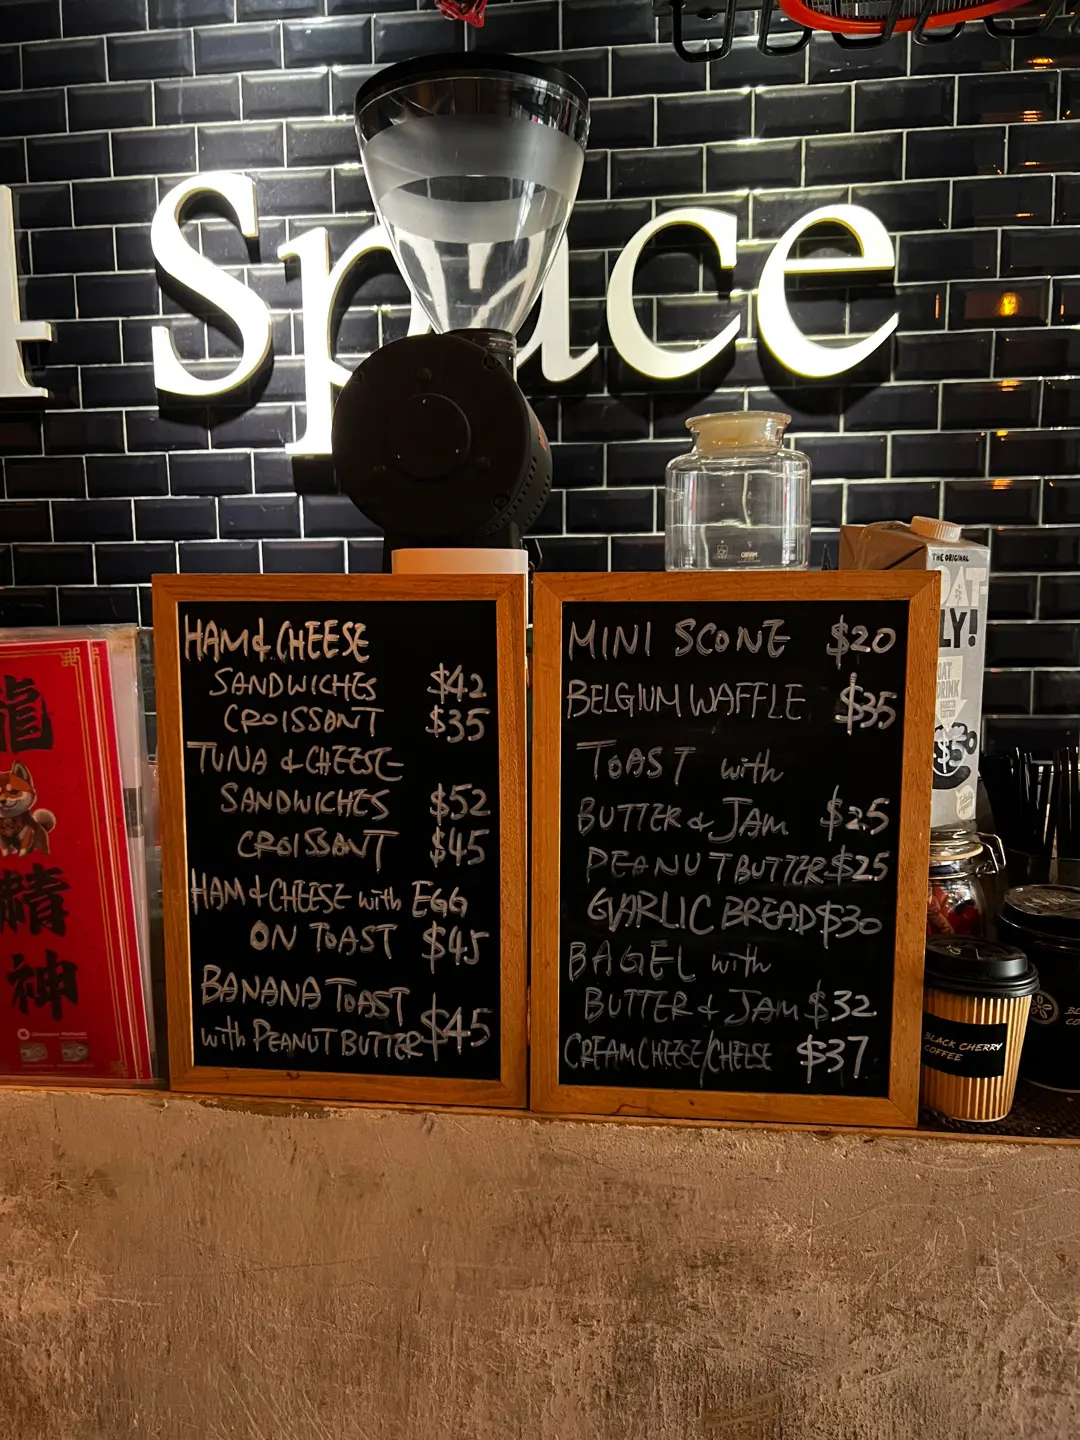 Space
HAM & CHEESE
SANDWICHES $42
CROISSANT $35
TUNA & CHEESE
SANDWICHES $52
CROISSANT $45
HAM & CHEESE with EGG
ON TOAST $45
BANANA TOAST
with PEANUT BUTTER $45
MINI SCONE $20
BELGIUM WAFFLE $35
TOAST with
BUTTER & JAM $25
PEANUT BUTTER $25
GARLIC BREAD $30
BAGEL with
BUTTER & JAM $32
CREAM CHEESE/CHEESE $37
THE ORIGINAL
LY!
龍
精
神
BLACK CHERRY
COFFEE